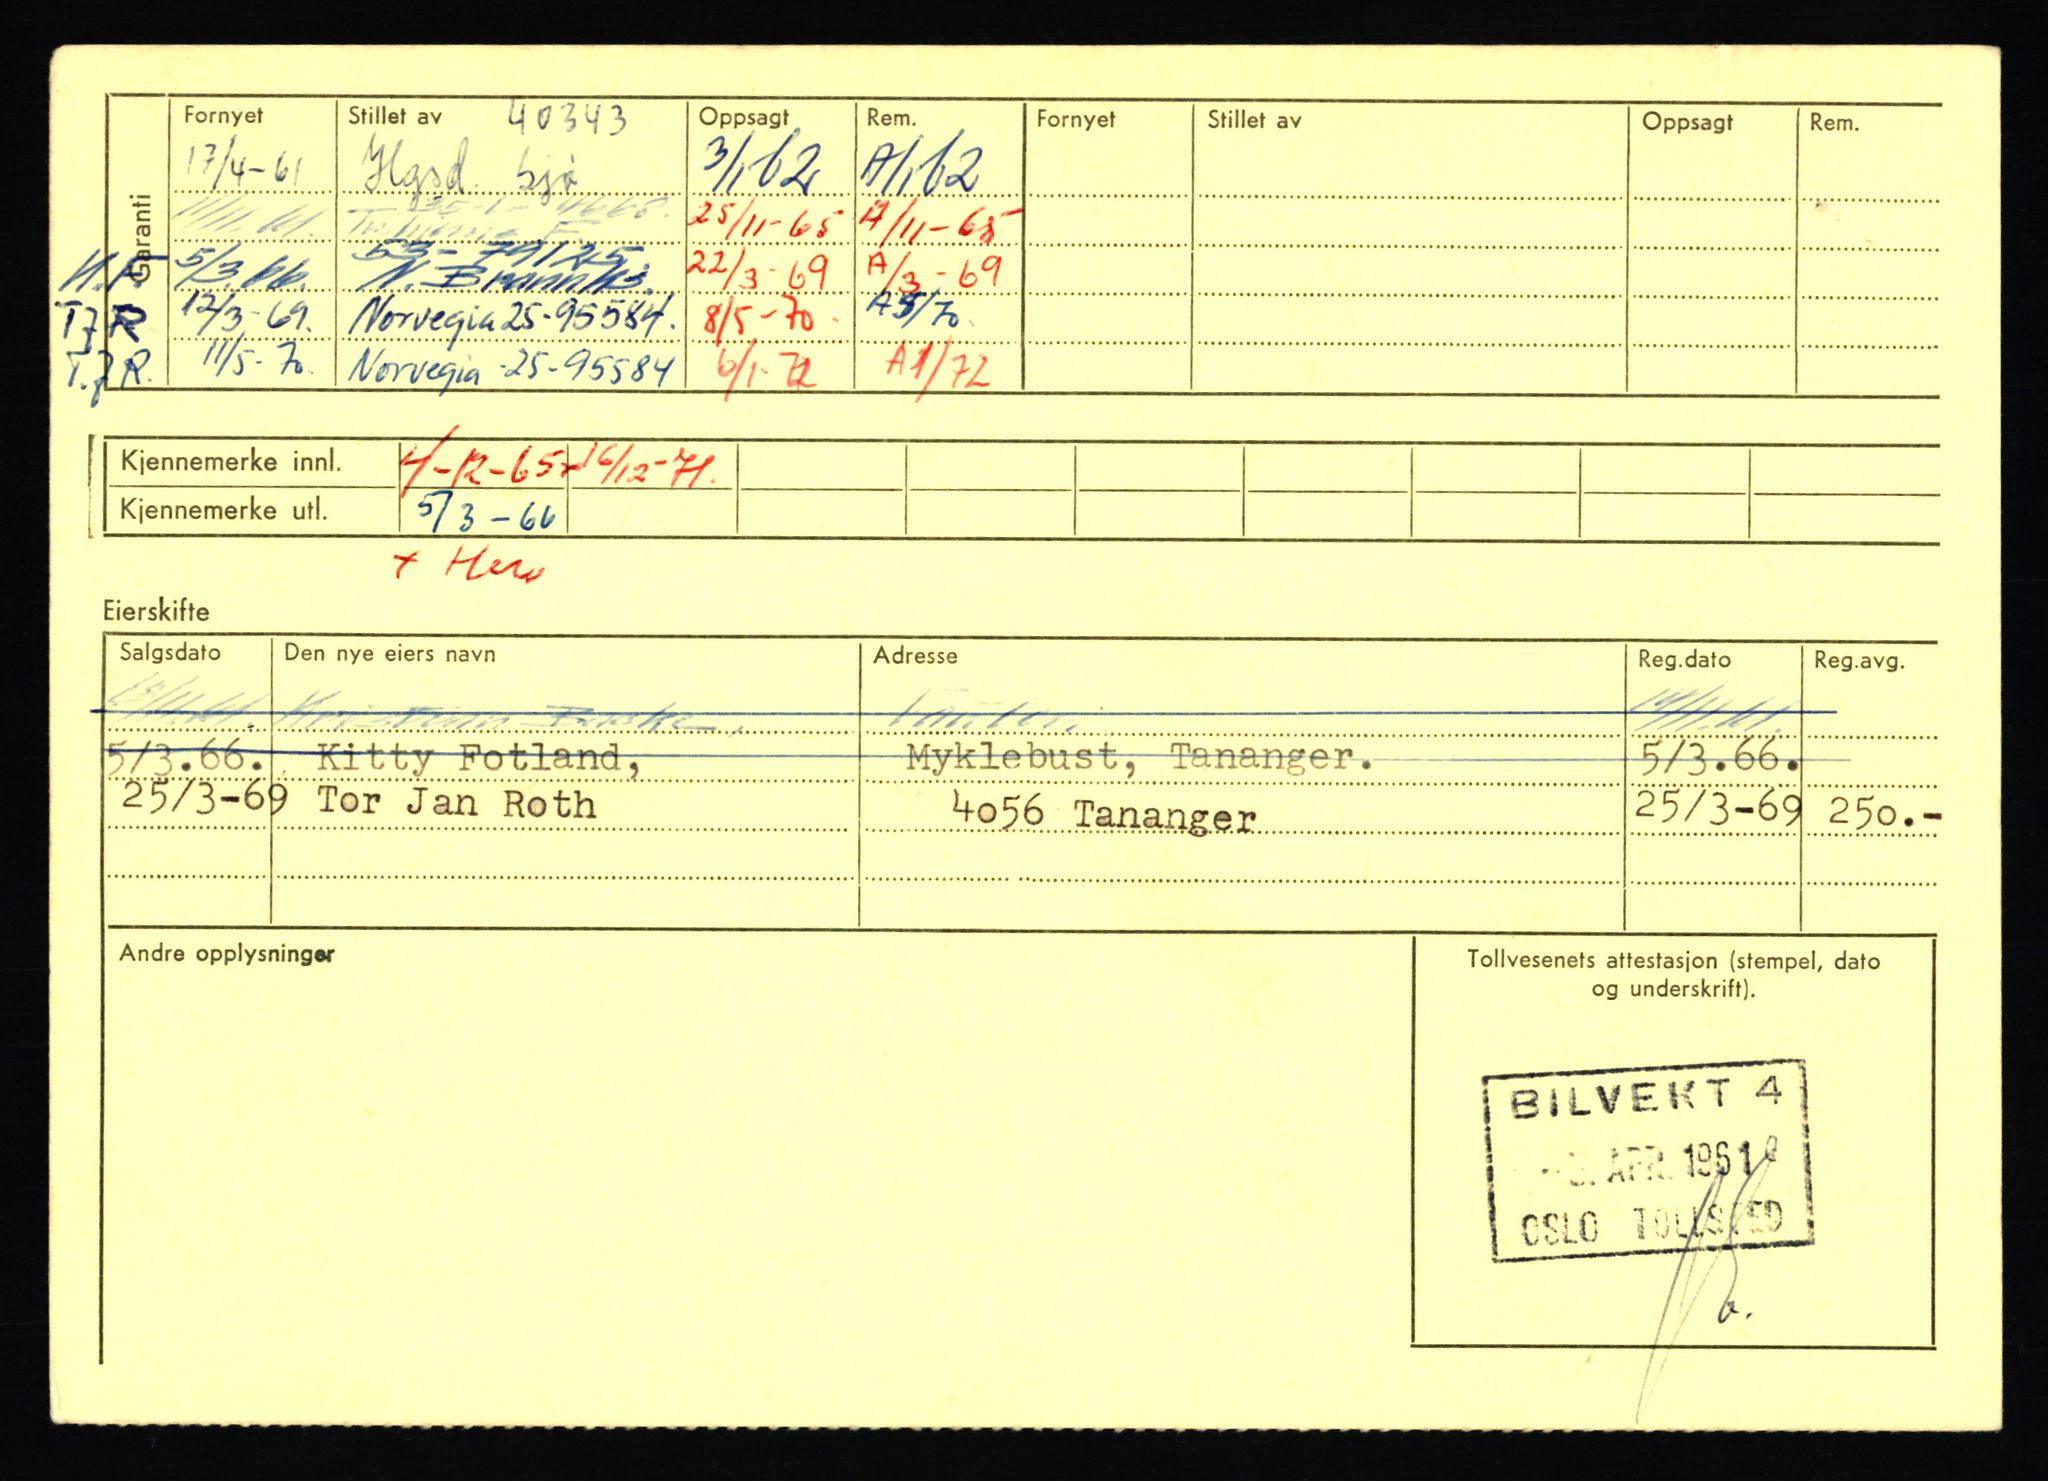 Garanti
Fornyet Stillet av 40343 Oppsagt Rem. Fornyet Stillet av Oppsagt Rem.
17/4-61 Hgsd. Sjø 3/1 62 A/1 62
11/11.61. 25/11-65 A/11-65
5/3.66. 53-79125. 22/3-69 A/3-69
T.J.R 12/3-69. Norvegia 25-95584. 8/5-70. A5/70.
T.J.R. 11/5-70. Norvegia-25-95584 6/1-72 A1/72
Kjennemerke innl. 4-12-65 16/12-71.
Kjennemerke utl. 5/3-66
Eierskifte
Salgsdato Den nye eiers navn Adresse Reg.dato Reg.avg.
5/3.66. Kitty Fotland, Myklebust, Tananger. 5/3.66.
25/3-69 Tor Jan Roth 4056 Tananger 25/3-69 250.-
Andre opplysninger
Tollvesenets attestasjon (stempel, dato
og underskrift).
BILVEKT 4
APR. 1961
OSLO TOLLSTED